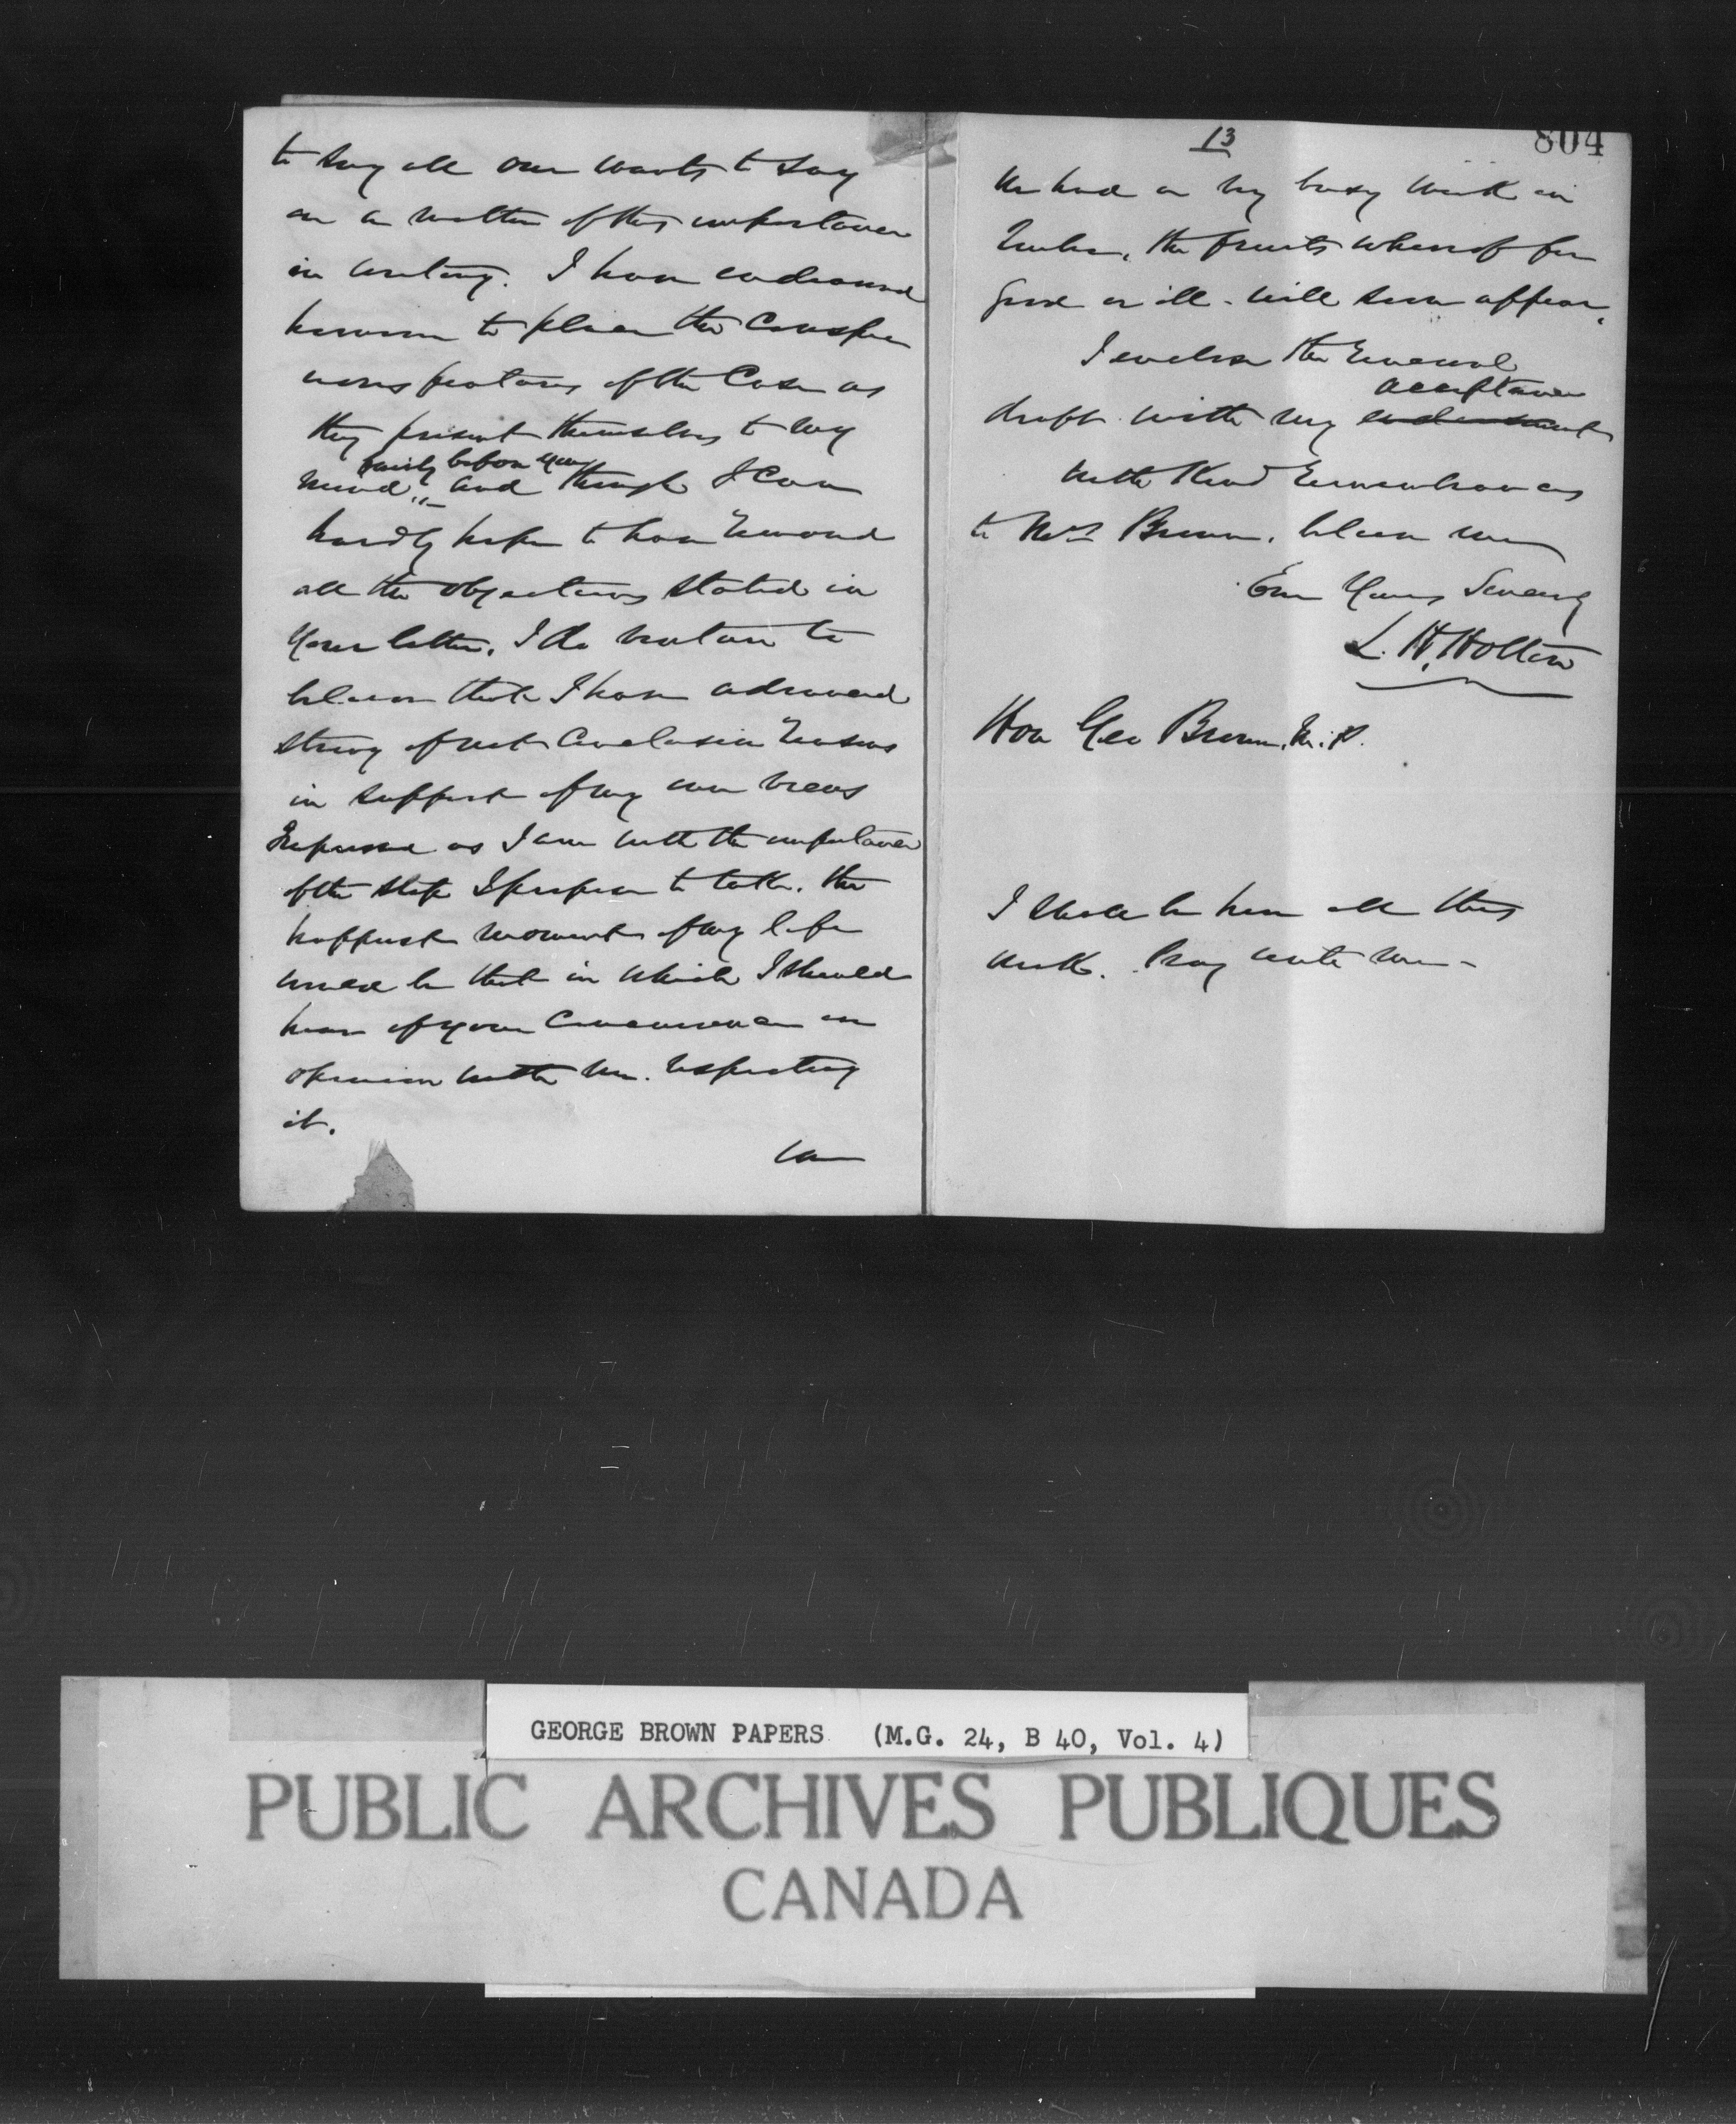 to say all one wants to say
on a matter of this importance
in writing. I have endeavored
however to place the Conspic
uous features of the Case as
they present themselves to my
fairly before you
mind, and though I can
hardly hope to have removed
all the objections stated in
your letter, I do venture to
believe that I have advanced
strong if not Conclusive reasons
in support of my own views
Impressed as I am with the importance
of the step I propose to take. the
happiest moment of my life
would be that in which I should
hear of your Concurrence in
opinion with me. respecting
it.
We
13
804
We had a very busy week in
Quebec, the fruits whereof for
good or ill - will soon appear.
I enclose the renewal
acceptance
draft with my endorsement
With Kind remembrances
to Mrs Brown, believe me
Ever Yours Sincerely
L. H. Holton
Hon Geo Brown, M.P.
I shall be here all this
week. Pray write me -
GEORGE BROWN PAPERS (M.G. 24, B 40, Vol. 4)
PUBLIC ARCHIVES PUBLIQUES
CANADA